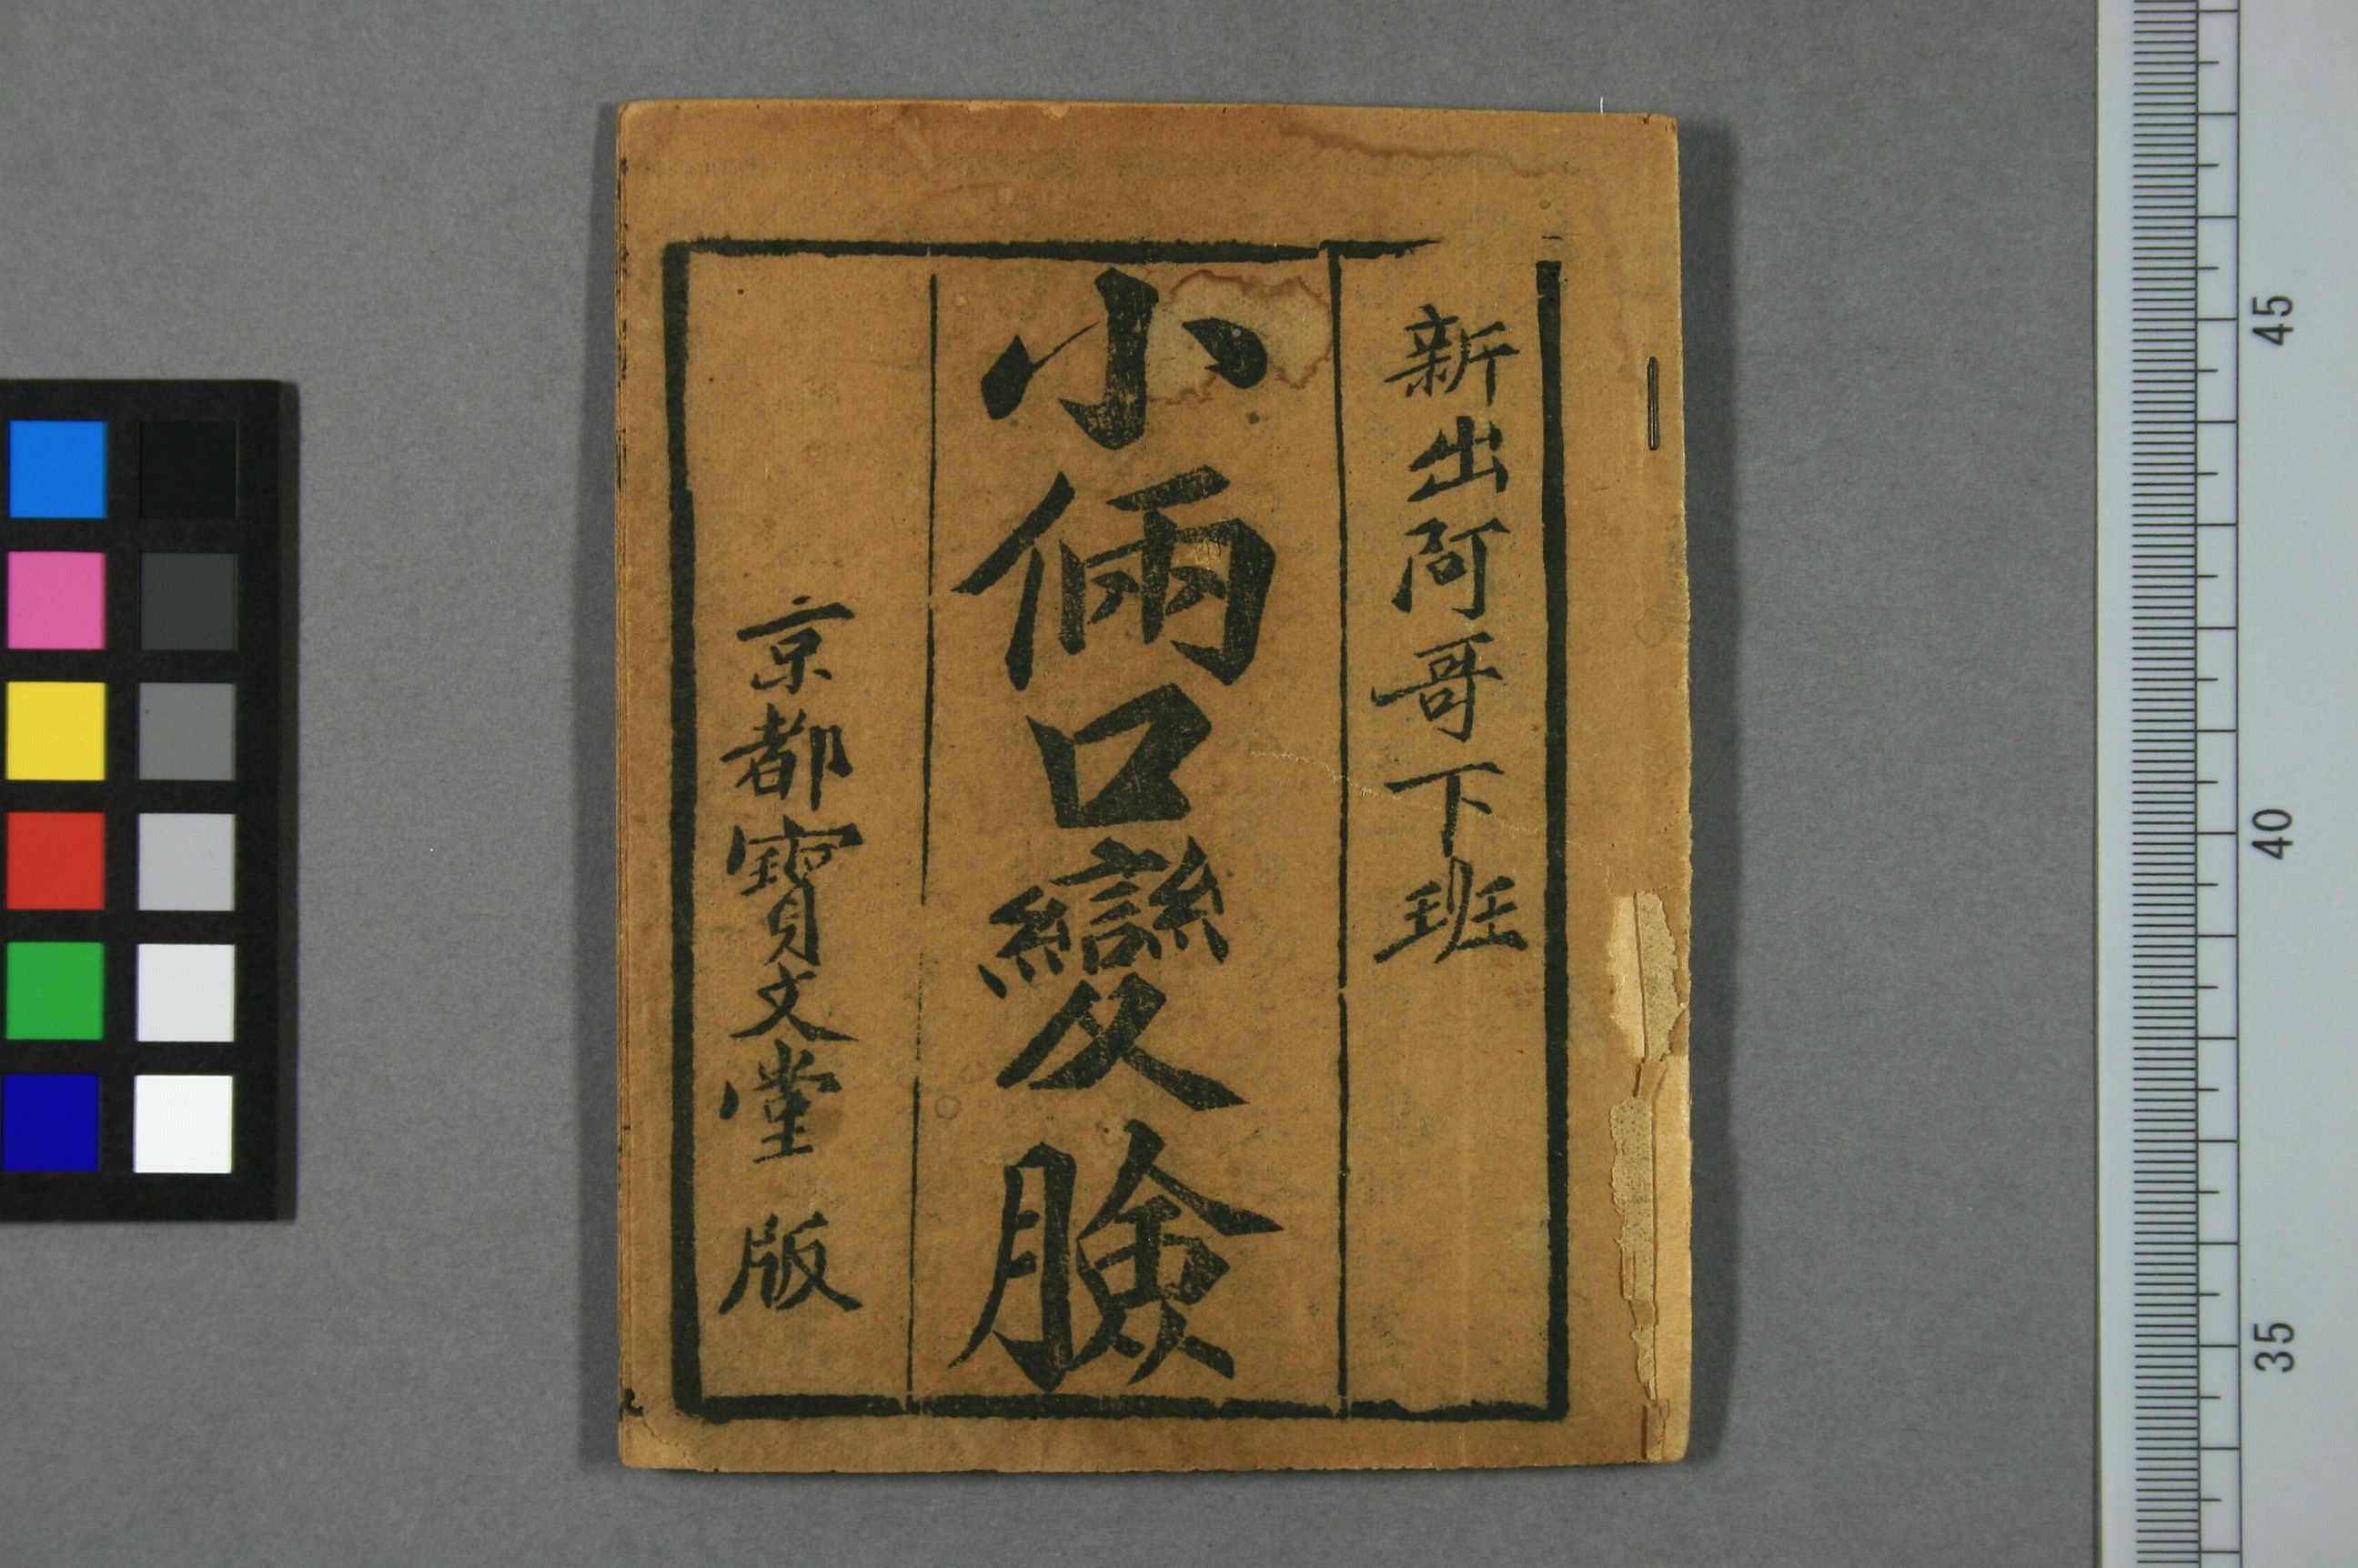 新出阿哥下班
小倆口變臉
京都寶文堂版
45
40
35